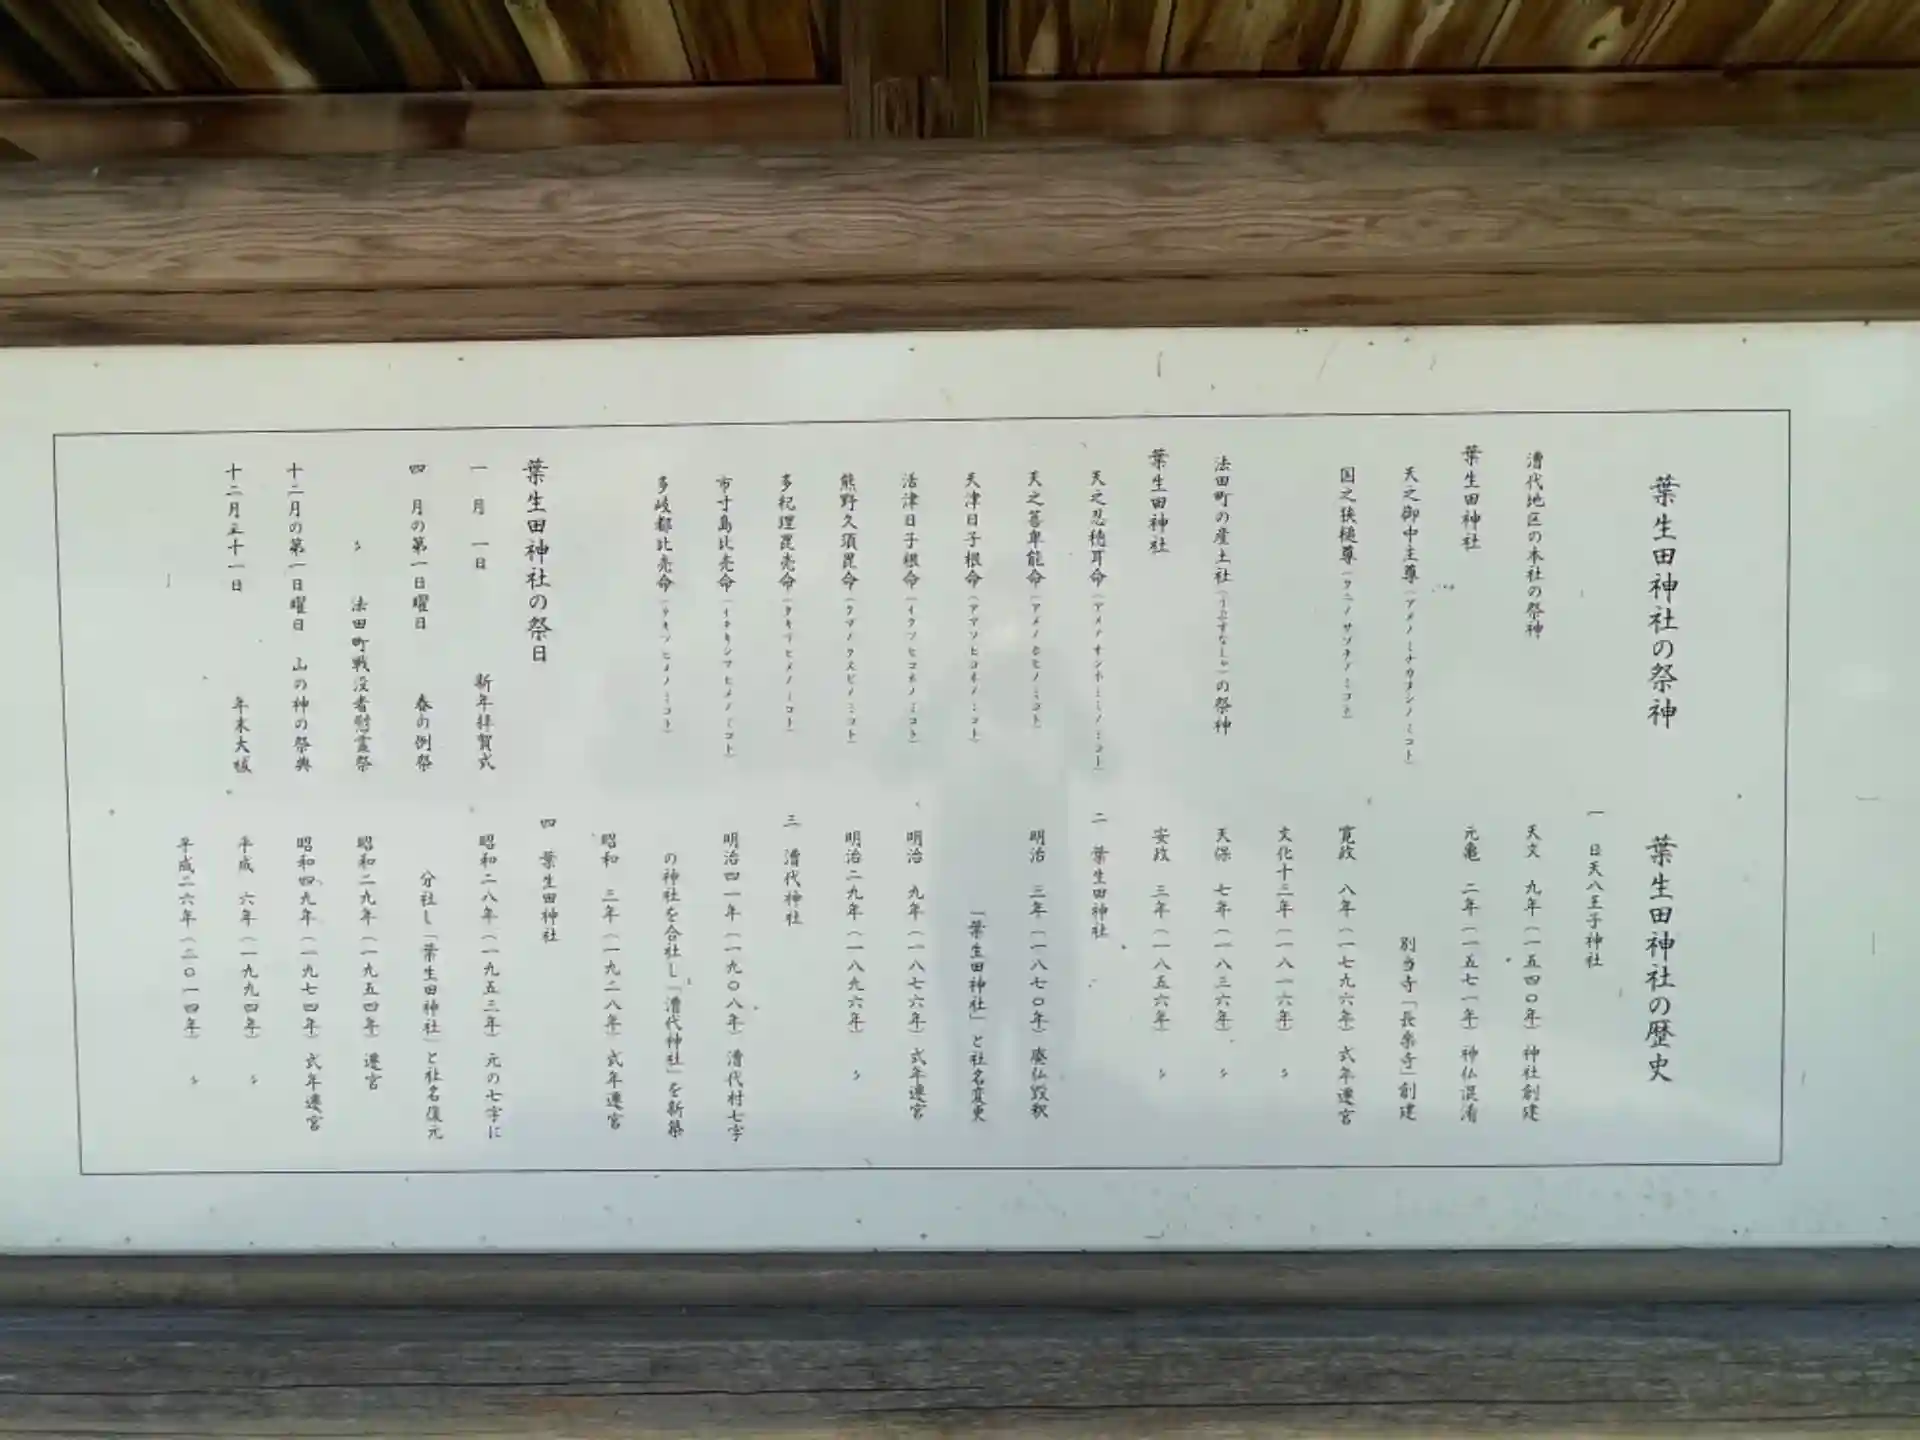 葉生田神社の祭神
漕代地区の本社の祭神
葉生田神社
天之御中主尊(アメノミナカヌシノミコト)
国之狭槌尊(クニノサヅチノミコト)
法田町の産土社(うぶすなしゃ)の祭神
葉生田神社
天之忍穂耳命(アメノオシホミミノミコト)
天之菩卑能命(アメノホヒノミコト)
天津日子根命(アマツヒコネノミコト)
活津日子根命(イクツヒコネノミコト)
熊野久須毘命(クマノクスビノミコト)
多紀理毘売命(タキリヒメノミコト)
市寸島比売命(イチキシマヒメノミコト)
多岐都比売命(タキツヒメノミコト)
葉生田神社の祭日
一月 一日 新年拝賀式
四 月の第一日曜日 春の例祭
〃 法田町戦没者慰霊祭
十二月の第一日曜日 山の神の祭典
十二月三十一日 年末大祓
葉生田神社の歴史
一 日天八王子神社
天文 九年(一五四〇年) 神社創建
元亀 二年(一五七一年) 神仏混淆
別当寺「長楽寺」創建
寛政 八年(一七九六年) 式年遷宮
文化十三年(一八一六年) 〃
天保 七年(一八三六年) 〃
安政 三年(一八五六年) 〃
二 葉生田神社
明治 三年(一八七〇年) 廃仏毀釈
「葉生田神社」と社名変更
明治 九年(一八七六年) 式年遷宮
明治二九年(一八九六年) 〃
三 漕代神社
明治四一年(一九〇八年) 漕代村七字
の神社を合社し「漕代神社」を新築
昭和 三年(一九二八年) 式年遷宮
四 葉生田神社
昭和二八年(一九五三年) 元の七字に
分社し「葉生田神社」と社名復元
昭和二九年(一九五四年) 遷宮
昭和四九年(一九七四年) 式年遷宮
平成 六年(一九九四年) 〃
平成二六年(二〇一四年) 〃